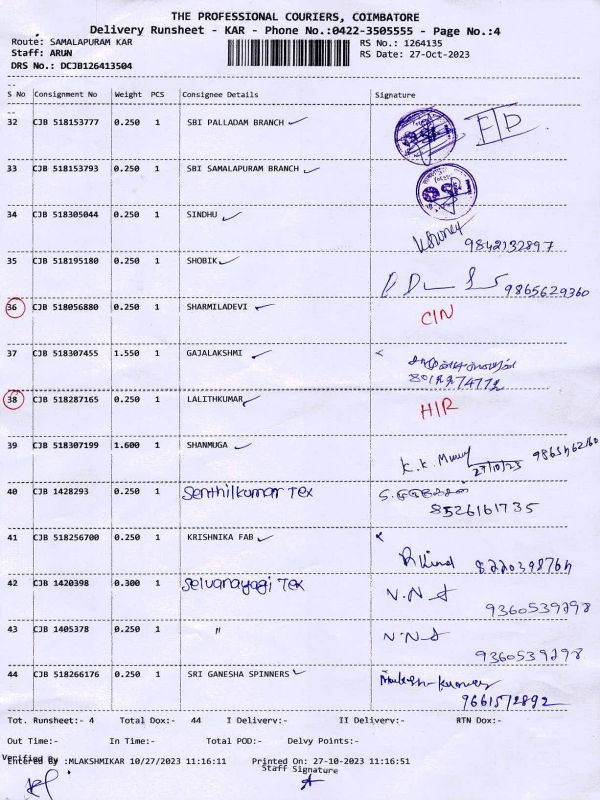 THE PROFESSIONAL COURIERS, COIMBATORE
Delivery Runsheet - KAR - Phone No.:0422-3505555 - Page No.:4
Route: SAMALAPURAM KAR RS No.: 1264135
Staff: ARUN RS Date: 27-Oct-2023
DRS No.: DCJB126413504
S No Consignment No Weight PCS Consignee Details Signature
32 CJB 518153777 0.250 1 SBI PALLADAM BRANCH
33 CJB 518153793 0.250 1 SBI SAMALAPURAM BRANCH
34 CJB 518305044 0.250 1 SINDHU
9842132897
35 CJB 518195180 0.250 1 SHOBIK
9865629360
36 CJB 518056880 0.250 1 SHARMILADEVI
C/N
37 CJB 518307455 1.550 1 GAJALAKSHMI
38 CJB 518287165 0.250 1 LALITHKUMAR H/R
39 CJB 518307199 1.600 1 SHANMUGA
27/10/23
40 CJB 1428293 0.250 1 Senthilkumar Tex
8526161735
41 CJB 518256700 0.250 1 KRISHNIKA FAB
8220398764
42 CJB 1420398 0.300 1 Selvanayagi Tex
9360539798
43 CJB 1405378 0.250 1 "
9360539798
44 CJB 518266176 0.250 1 SRI GANESHA SPINNERS
9661572892
Tot. Runsheet:- 4 Total Dox:- 44 I Delivery:- II Delivery:- RTN Dox:-
Out Time:- In Time:- Total POD:- Delvy Points:-
Verified By
Entered By :MLAKSHMIKAR 10/27/2023 11:16:11 Printed On: 27-10-2023 11:16:51
Staff Signature